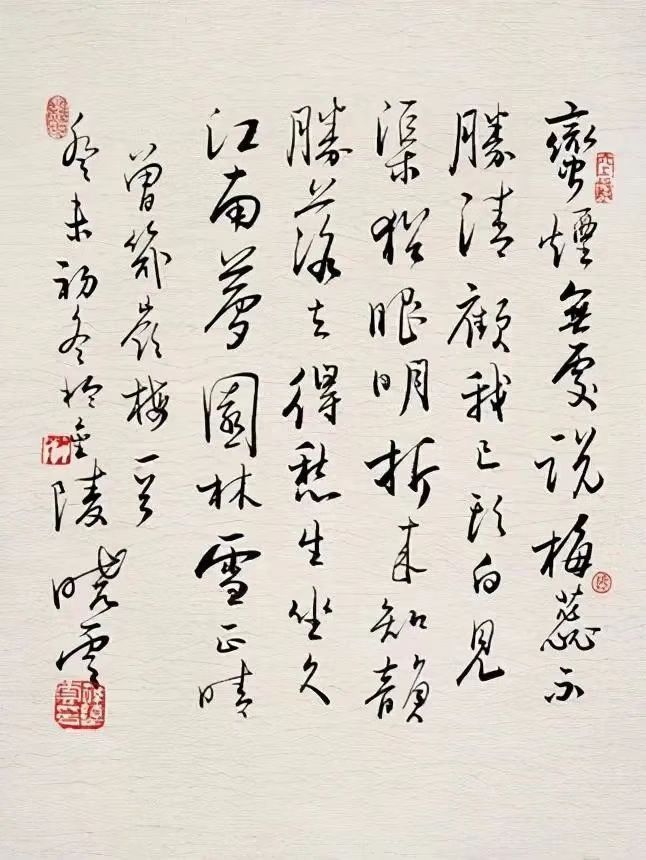 蠻煙無處說梅蕊不
勝清顧我已頭白見
渠猶眼明折來知韻
勝落去得愁生坐久
江南夢園林雪正晴
曾幾嶺梅一首
癸未初冬於金陵曉雲